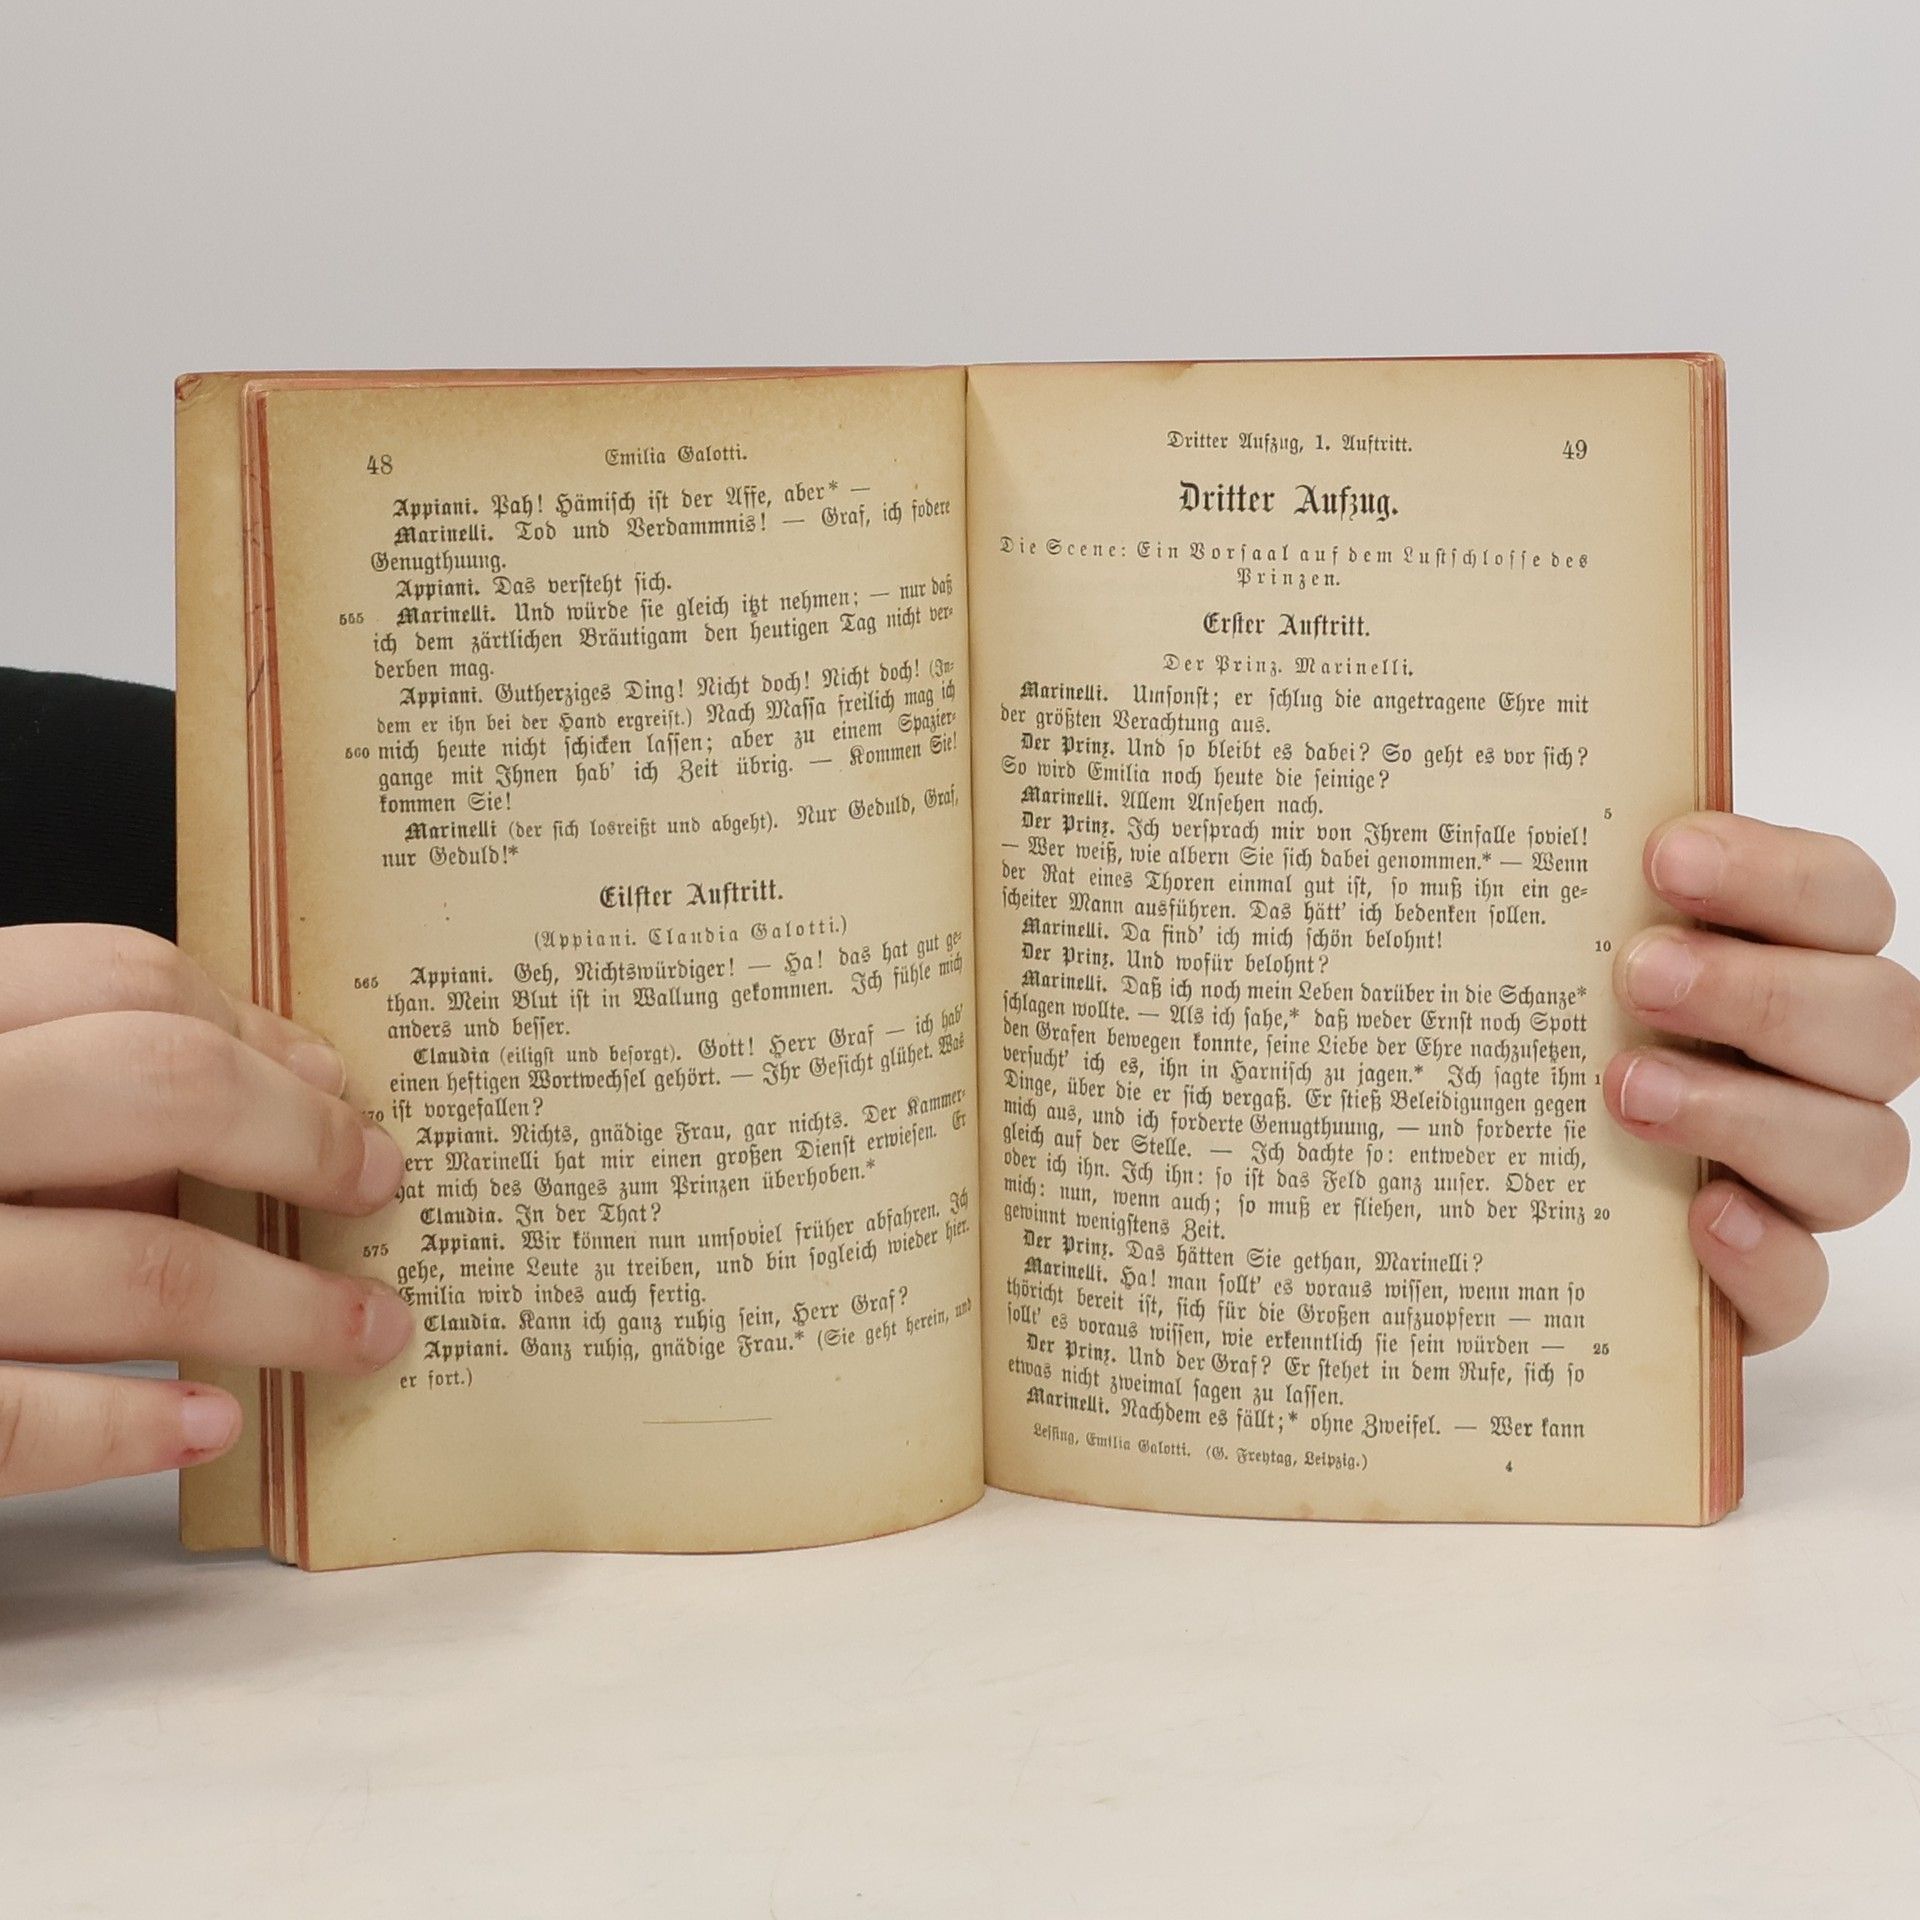 48 Emilia Galotti.
Appiani. Pah! Hämiſch iſt der Affe, aber* —
Marinelli. Tod und Verdammnis! — Graf, ich fodere
Genugthuung.
Appiani. Das verſteht ſich.
555 Marinelli. Und würde ſie gleich itzt nehmen; — nur daß
ich dem zärtlichen Bräutigam den heutigen Tag nicht ver⸗
derben mag.
Appiani. Gutherziges Ding! Nicht doch! Nicht doch! (In⸗
dem er ihn bei der Hand ergreift.) Nach Maſſa freilich mag ich
560 mich heute nicht ſchicken laſſen; aber zu einem Spazier⸗
gange mit Ihnen hab' ich Zeit übrig. — Kommen Sie!
kommen Sie!
Marinelli (der ſich losreißt und abgeht). Nur Geduld, Graf,
nur Geduld!*
Eilfter Auftritt.
(Appiani. Claudia Galotti.)
565 Appiani. Geh, Nichtswürdiger! — Ha! das hat gut ge⸗
than. Mein Blut iſt in Wallung gekommen. Ich fühle mich
anders und beſſer.
Claudia (eiligſt und beſorgt). Gott! Herr Graf — ich hab'
einen heftigen Wortwechſel gehört. — Ihr Geſicht glühet. Was
70 iſt vorgefallen?
Appiani. Nichts, gnädige Frau, gar nichts. Der Kammer⸗
err Marinelli hat mir einen großen Dienſt erwieſen. Er
hat mich des Ganges zum Prinzen überhoben.*
Claudia. In der That?
575 Appiani. Wir können nun umſoviel früher abfahren. Ich
gehe, meine Leute zu treiben, und bin ſogleich wieder hier.
Emilia wird indes auch fertig.
Claudia. Kann ich ganz ruhig ſein, Herr Graf?
Appiani. Ganz ruhig, gnädige Frau.* (Sie geht herein, und
er fort.)
Dritter Aufzug, 1. Auftritt. 49
Dritter Aufzug.
Die Scene: Ein Vorſaal auf dem Luſtſchloſſe des
Prinzen.
Erſter Auftritt.
Der Prinz. Marinelli.
Marinelli. Umſonſt; er ſchlug die angetragene Ehre mit
der größten Verachtung aus.
Der Prinz. Und ſo bleibt es dabei? So geht es vor ſich?
So wird Emilia noch heute die ſeinige?
Marinelli. Allem Anſehen nach. 5
Der Prinz. Ich verſprach mir von Ihrem Einfalle ſoviel!
— Wer weiß, wie albern Sie ſich dabei genommen.* — Wenn
der Rat eines Thoren einmal gut iſt, ſo muß ihn ein ge⸗
ſcheiter Mann ausführen. Das hätt' ich bedenken ſollen.
Marinelli. Da find' ich mich ſchön belohnt! 10
Der Prinz. Und wofür belohnt?
Marinelli. Daß ich noch mein Leben darüber in die Schanze*
ſchlagen wollte. — Als ich ſahe,* daß weder Ernſt noch Spott
den Grafen bewegen konnte, ſeine Liebe der Ehre nachzuſetzen,
verſucht' ich es, ihn in Harniſch zu jagen.* Ich ſagte ihm 1
Dinge, über die er ſich vergaß. Er ſtieß Beleidigungen gegen
mich aus, und ich forderte Genugthuung, — und forderte ſie
gleich auf der Stelle. — Ich dachte ſo: entweder er mich,
oder ich ihn. Ich ihn: ſo iſt das Feld ganz unſer. Oder er
mich: nun, wenn auch; ſo muß er fliehen, und der Prinz 20
gewinnt wenigſtens Zeit.
Der Prinz. Das hätten Sie gethan, Marinelli?
Marinelli. Ha! man ſollt' es voraus wiſſen, wenn man ſo
thöricht bereit iſt, ſich für die Großen aufzuopfern — man
ſollt' es voraus wiſſen, wie erkenntlich ſie ſein würden — 25
Der Prinz. Und der Graf? Er ſtehet in dem Rufe, ſich ſo
etwas nicht zweimal ſagen zu laſſen.
Marinelli. Nachdem es fällt;* ohne Zweifel. — Wer kann
Leſſing, Emilia Galotti. (G. Freytag, Leipzig.) 4